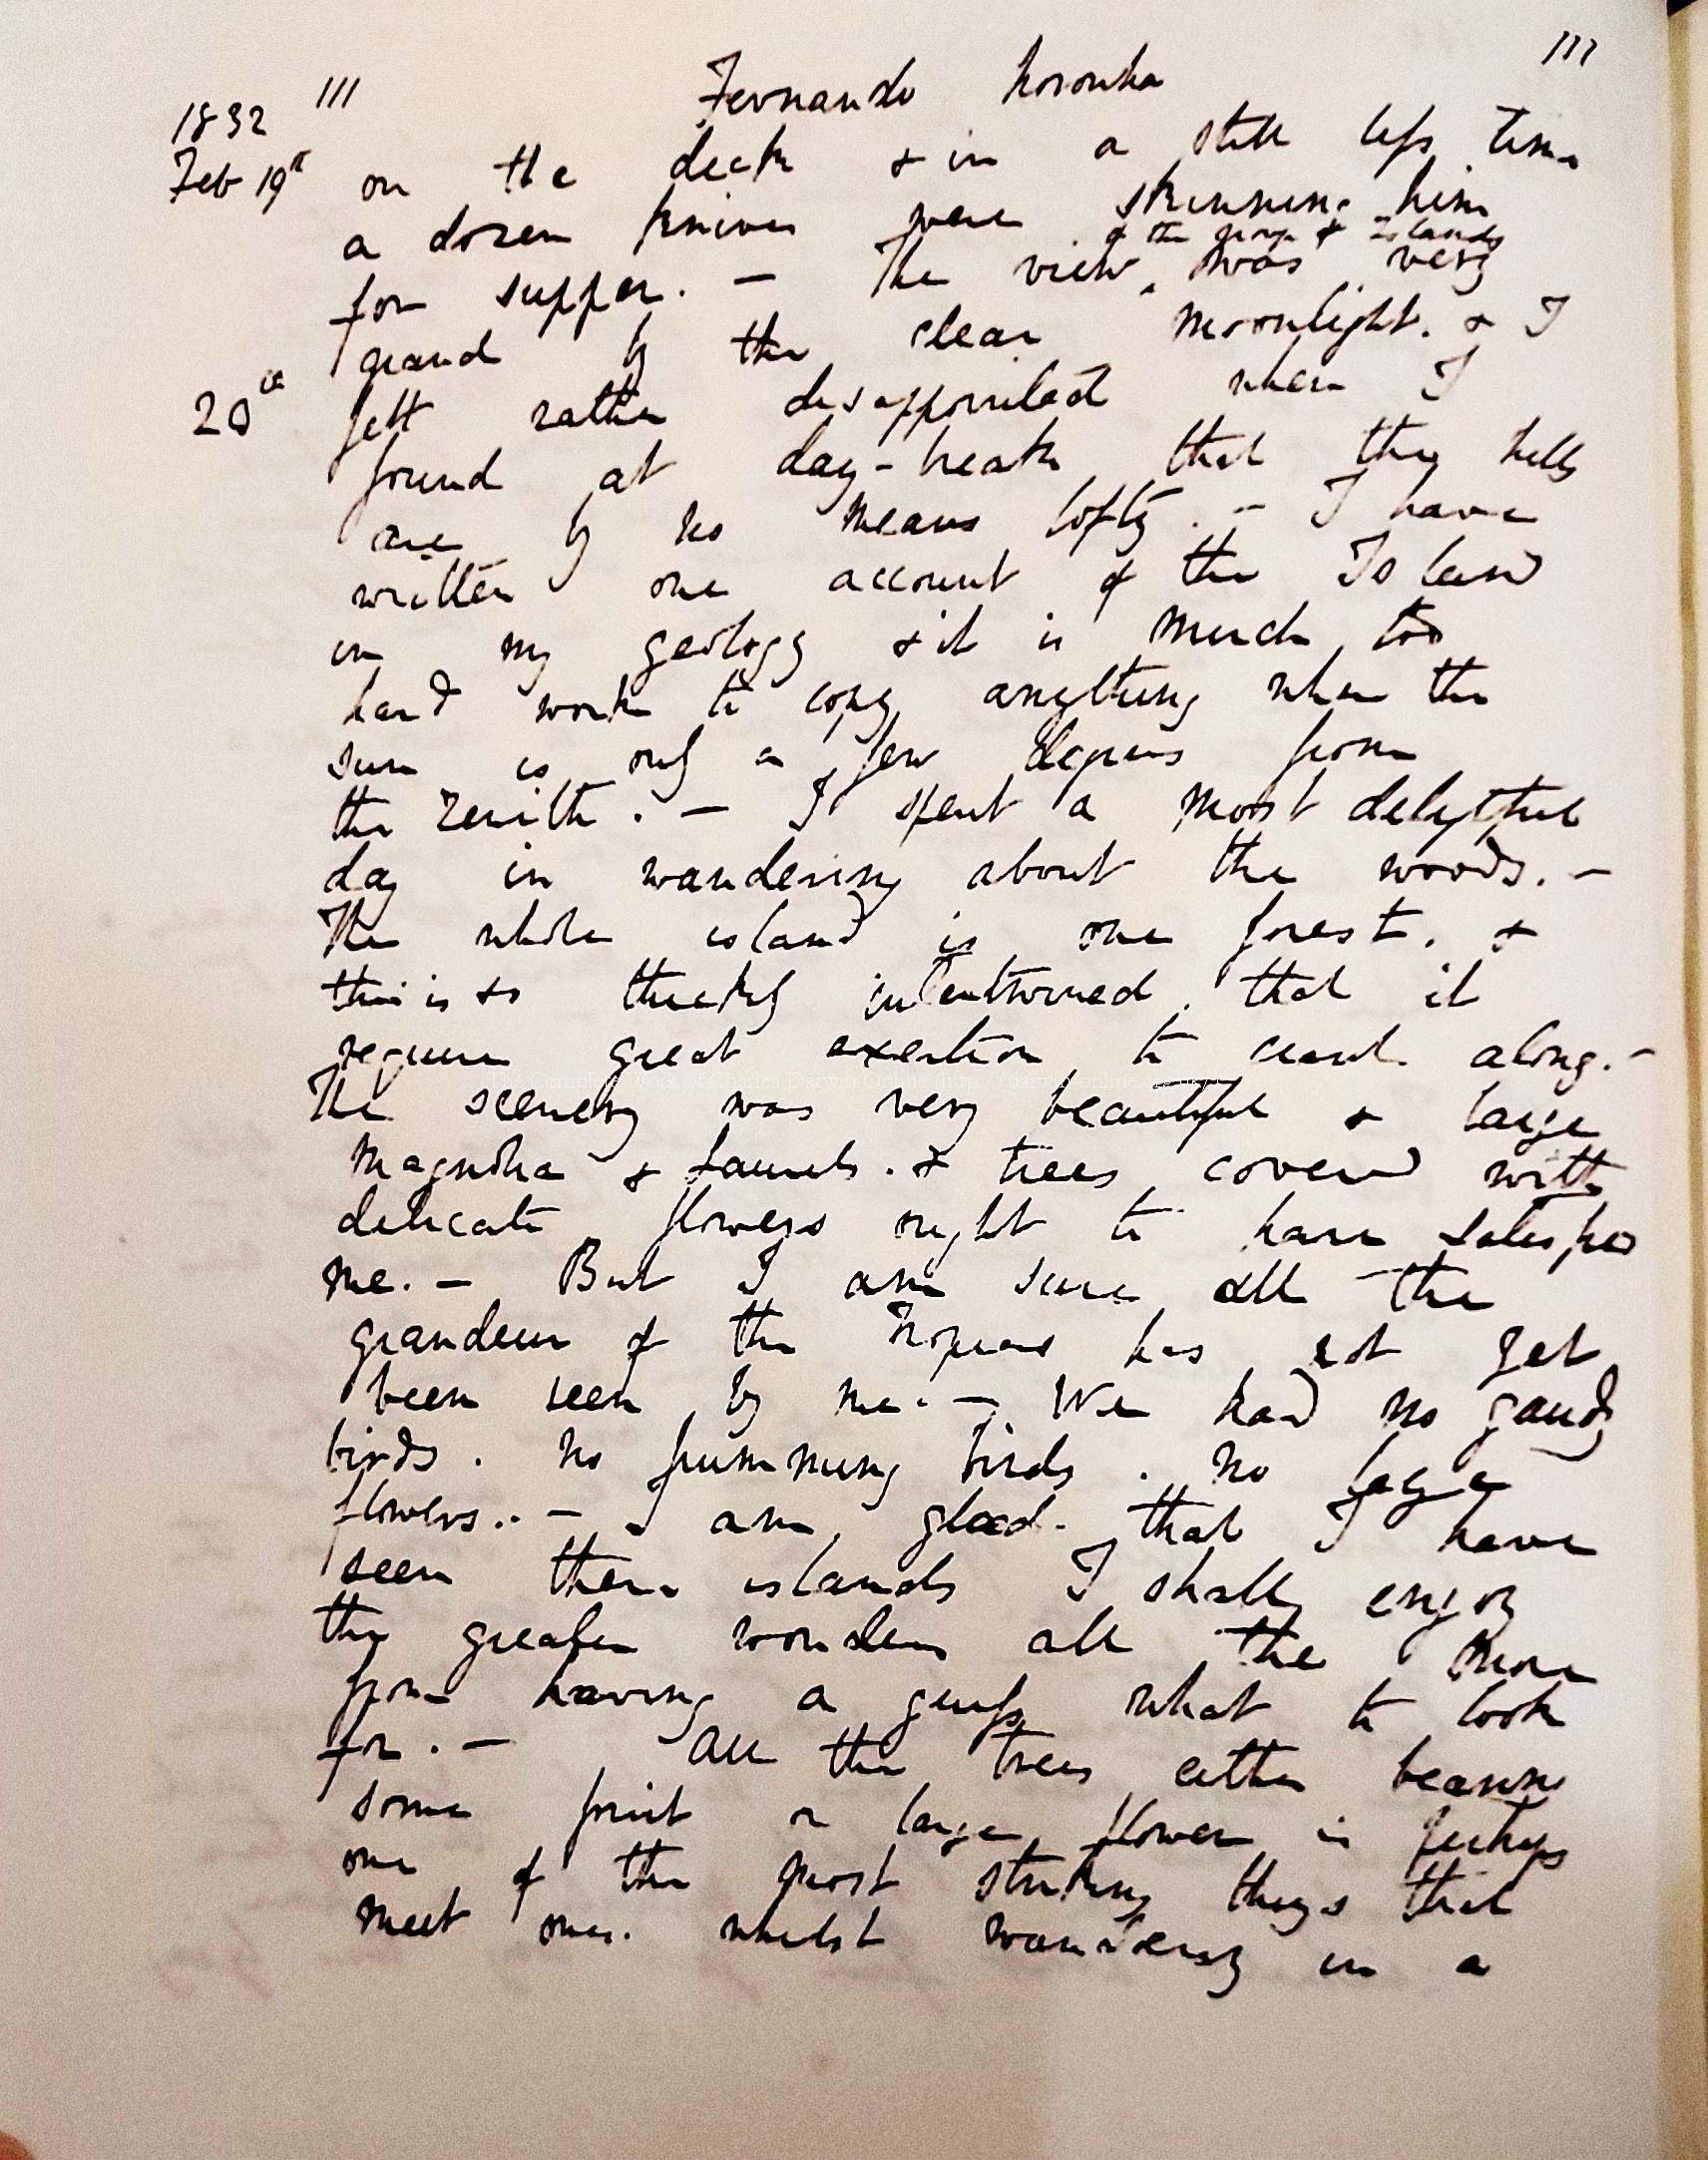 111 Fernando Noronha 111
1832
Feb 19th on the deck & in a still less time
a dozen knives were skinning him
of the group of Islands
for supper. — The view was very
grand by the clear moonlight. & I
20th felt rather disappointed when I
found at day-break that they hills
are by no means lofty. — I have
written one account of the Island
in my geology & it is much too
hard work to copy anything when the
sun is only a few degrees from
the zenith. — I spent a most delightful
day in wandering about the woods. —
The whole island is one forest, &
this is so thickly intertwined that it
requires great exertion to crawl along. —
The scenery was very beautiful & large
Magnolias & Laurels & trees covered with
delicate flowers ought to have satisfied
me. — But I am sure all the
grandeur of the Tropics has not yet
been seen by me. — We had no gaudy
birds. No humming birds. No large
flowers. — I am glad that I have
seen these islands I shall enjoy
the greater wonders all the more
from having a guess what to look
for. — All the trees either bearing
some fruit or large flower is perhaps
one of the most striking things that
meet one whilst wandering in a